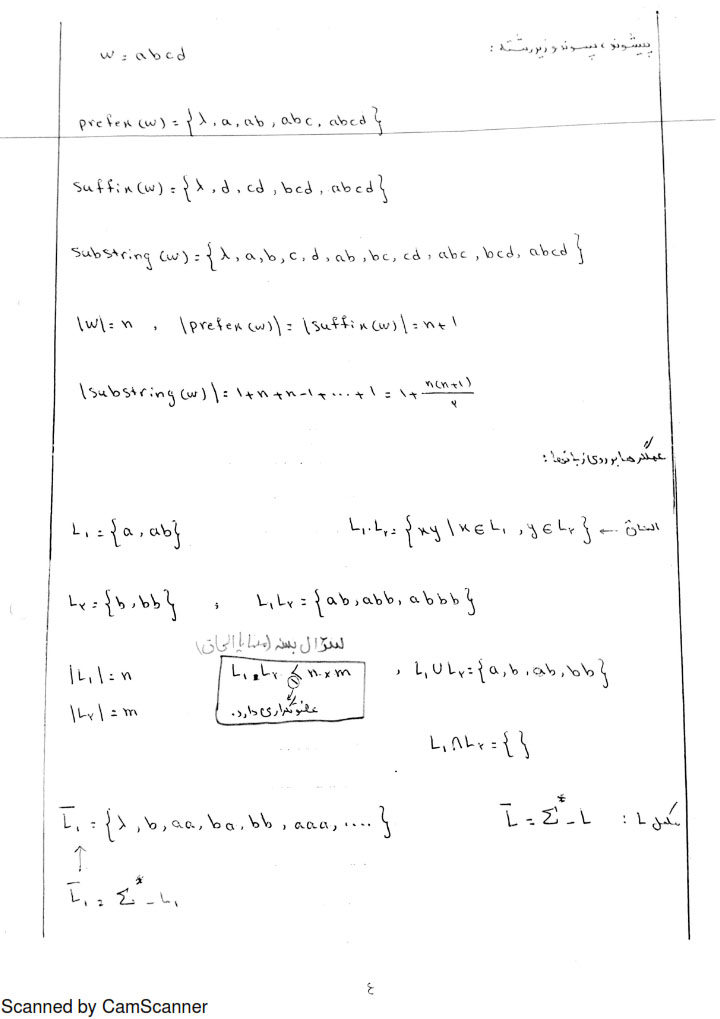 پیشوند، پسوند و زیررشته :
w = abcd
prefex(w) = {λ, a, ab, abc, abcd}
suffix(w) = {λ, d, cd, bcd, abcd}
substring(w) = {λ, a, b, c, d, ab, bc, cd, abc, bcd, abcd}
|w| = n , |prefex(w)| = |suffix(w)| = n+1
|substring(w)| = 1+n+n-1+...+1 = 1+ n(n+1)/۲
عملگرها بر روی زبانها :
L₁ = {a, ab} L₁.L۲ = {xy | x ∈ L₁ , y ∈ L۲} ← الحاق
L۲ = {b, bb} , L₁L۲ = {ab, abb, abbb}
سؤال بسته (مسایا الحاق)
|L₁| = n L₁.L۲ ≤ n×m , L₁∪L۲ = {a, b, ab, bb}
|L۲| = m عضو تکراری دارد.
L₁∩L۲ = { }
L̅₁ = {λ, b, aa, ba, bb, aaa, ....} L̅ = Σ* - L : مکمل L
↑
L̅₁ = Σ* - L₁
٤
Scanned by CamScanner